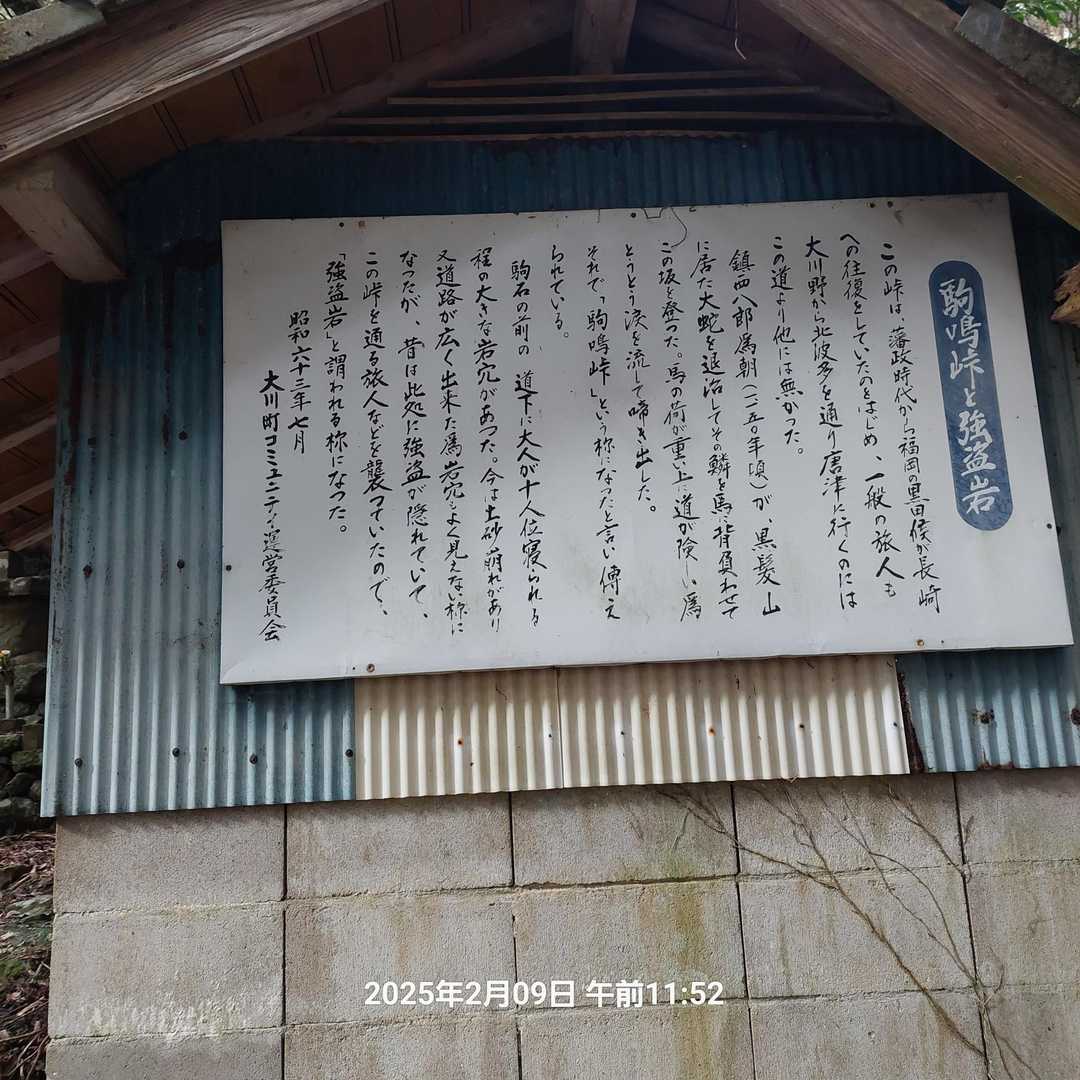 駒鳴峠と強盗岩
この峠は、藩政時代から福岡の黒田侯が長崎
への往復をしていたのをはじめ、一般の旅人も
大川野から北波多を通り唐津に行くのには
この道より他には無かった。
鎮西八郎為朝(一一五〇年頃)が、黒髪山
に居た大蛇を退治してその鱗を馬に背負わせて
この坂を登った。馬の荷が重い上に道が険しい為
とうとう涙を流して啼き出した。
それで「駒鳴峠」という称になったと言い傳え
られている。
駒石の前の 道下に大人が十人位寝られる
程の大きな岩穴があった。今は土砂崩れがあり
又道路が広く出来た為岩穴がよく見えない称に
なったが、昔は此処に強盗が隠れていて、
この峠を通る旅人などを襲っていたので、
「強盗岩」と謂われる称になった。
昭和六十三年七月
大川町コミュニティ運営委員会
2025年2月09日 午前11:52